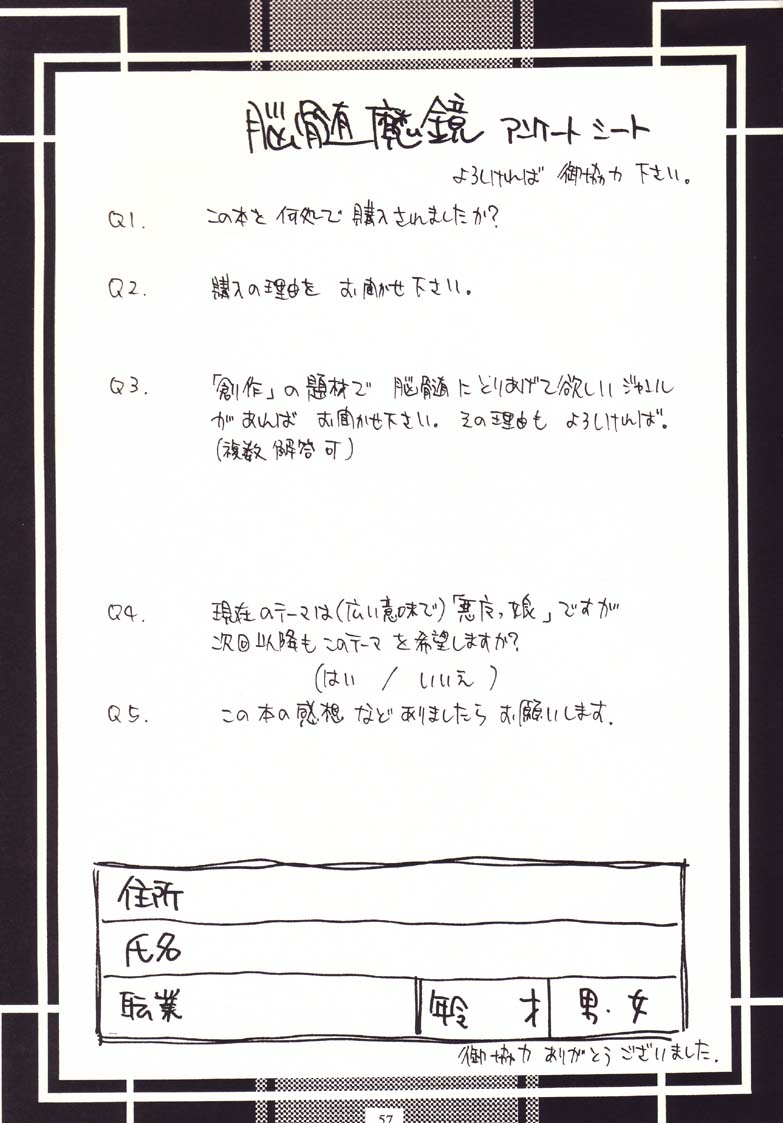 脳髄魔鏡 アンケートシート
よろしければ 御協力 下さい。
Q1. この本を何処で購入されましたか?
Q2. 購入の理由を お聞かせ下さい。
Q3. 「創作」の題材で 脳髄にとりあげて欲しいジャンル
があれば お聞かせ下さい。その理由も よろしければ。
(複数解答可)
Q4. 現在のテーマは(広い意味で)「悪 娘」ですが
次回以降もこのテーマを希望しますか?
(はい / いいえ)
Q5. この本の感想 などありましたら お願いします.
住所
氏名
転業
年令 才 男・女
御協力 ありがとうございました.
57